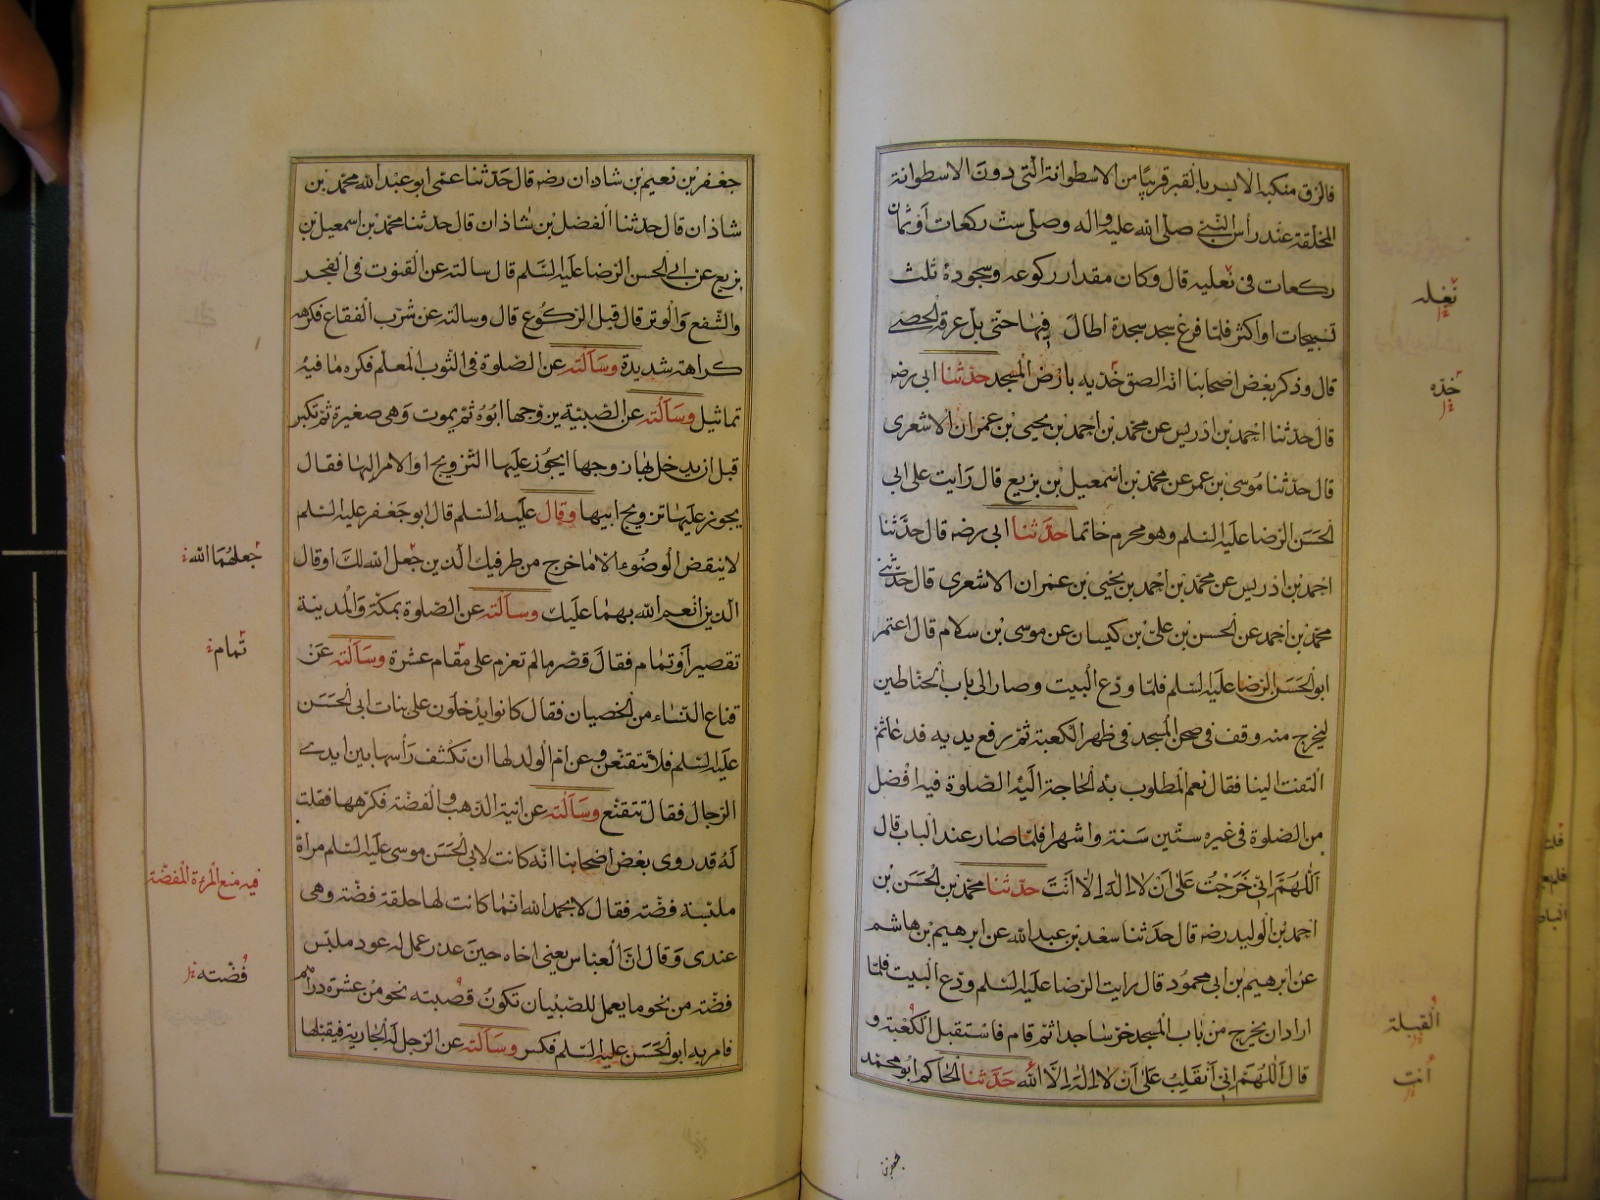 فالزق منكبه الايسر بالقبر قريبا من الاسطوانة التى دون الاسطوانة
المخلقة عند رأس النبي صلى الله عليه واله وصلى ست ركعات او ثمان
ركعات فى نعليه قال وكان مقدار ركوعه وسجوده ثلث
تسبيحات او اكثر فلما فرغ سجد سجدة اطال فيها حتى بل عرقه الحصى
قال وذكر بعض اصحابنا انه الصق خديه بارض المسجد حدثنا ابى رضه
قال حدثنا احمد بن ادريس عن محمد بن احمد بن يحيى بن عمران الاشعرى
قال حدثنا موسى بن عمر عن محمد بن اسمعيل بن بزيع قال رايت على ابى
الحسن الرضا عليه السلم وهو محرم خاتما حدثنا ابى رضه قال حدثنا
احمد بن ادريس عن محمد بن احمد بن يحيى بن عمران الاشعرى قال حدثنى
محمد بن احمد عن الحسن بن على بن كيسان عن موسى بن سلام قال اعتمر
ابو الحسن الرضا عليه السلم فلما ودع البيت وصار الى باب الحناطين
ليخرج منه وقف فى صحن المسجد فى ظهر الكعبة ثم رفع يديه فدعا ثم
التفت الينا فقال نعم المطلوب به الحاجة اليه الصلوة فيه افضل
من الصلوة فى غيره ستين سنة واشهرا فلما صار عند الباب قال
اللهم انى خرجت على ان لا اله الا انت حدثنا محمد بن الحسن بن
احمد بن الوليد رضه قال حدثنا سعد بن عبد الله عن ابرهيم بن هاشم
عن ابرهيم بن ابى محمود قال رايت الرضا عليه السلم ودع البيت فلما
اراد ان يخرج من باب المسجد خر ساجدا ثم قام فاستقبل الكعبة و
قال اللهم انى انقلب على ان لا اله الا الله حدثنا الحاكم ابو محمد
نعله
خده
القبلة
انت
جعفر بن
جعفر بن نعيم بن شاذان رضه قال حدثنا عمى ابو عبد الله محمد بن
شاذان قال حدثنا الفضل بن شاذان قال حدثنا محمد بن اسمعيل بن
بزيع عن ابى الحسن الرضا عليه السلم قال سالته عن القنوت فى الفجر
والشفع والوتر قال قبل الركوع قال وسالته عن شرب الفقاع فكرهه
كراهة شديدة وسألته عن الصلوة فى الثوب المعلم فكره ما فيه
تماثيل وسألته عن الصبية يزوجها ابوه ثم يموت وهى صغيرة ثم تكبر
قبل ان يدخل بها زوجها ايجوز عليها التزويج او الامر اليها فقال
يجوز عليها تزويج ابيها وقال عليه السلم قال ابو جعفر عليه السلم
لا ينقض الوضوء الا ما خرج من طرفيك الذين جعل الله لك او قال
الذين انعم الله بهما عليك وسألته عن الصلوة بمكة والمدينة
تقصير او تمام فقال قصر ما لم تعزم على مقام عشرة وسألته عن
قناع النساء من الخصيان فقال كانوا يدخلون على بنات ابى الحسن
عليه السلم فلا تتقنعن وعن ام الولد لها ان تكشف رأسها بين ايدى
الرجال فقال تتقنع وسألته عن انية الذهب والفضة فكرهها فقلت
له قد روى بعض اصحابنا انه كانت لابى الحسن موسى عليه السلم مراة
ملبسة فضة فقال لا بحمد الله انما كانت لها حلقة فضة وهى
عندى وقال ان العباس يعنى اخاه حين عذر عمل له عود ملبس
فضة من نحو ما يعمل للصبيان تكون قصبته نحو من عشرة دراهم
فامر به ابو الحسن عليه السلم فكسر وسألته عن الرجل له الجارية فيقبلها
جعلهما الله
تمام
فيه منع المرءة المفضة
فضته